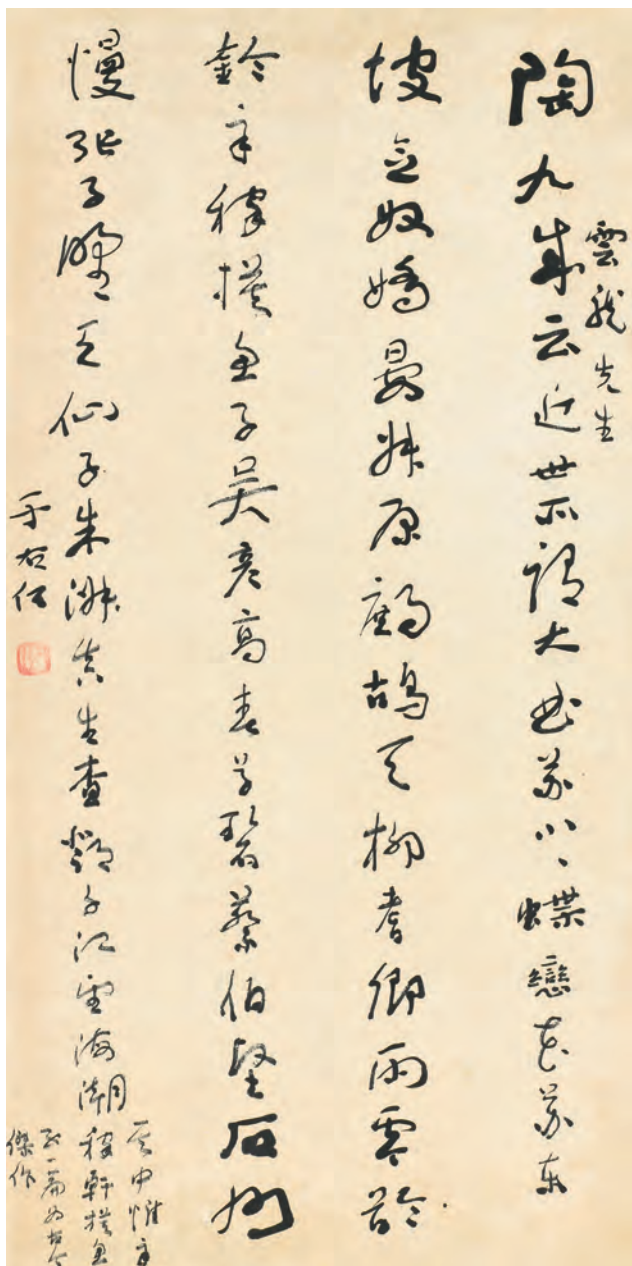 雲龍先生
陶九成云近世所謂大曲蘇小〻蝶戀花蘇東
坡念奴嬌晏叔原鷓鴣天柳耆卿雨零齡
鈴辛稼摸魚子吳彥高春草碧蔡伯堅石州
慢張子野天仙子朱淑真生查鄧千江望海潮
其中惟辛
稼軒摸魚
子一篇為古今
傑作
于右任